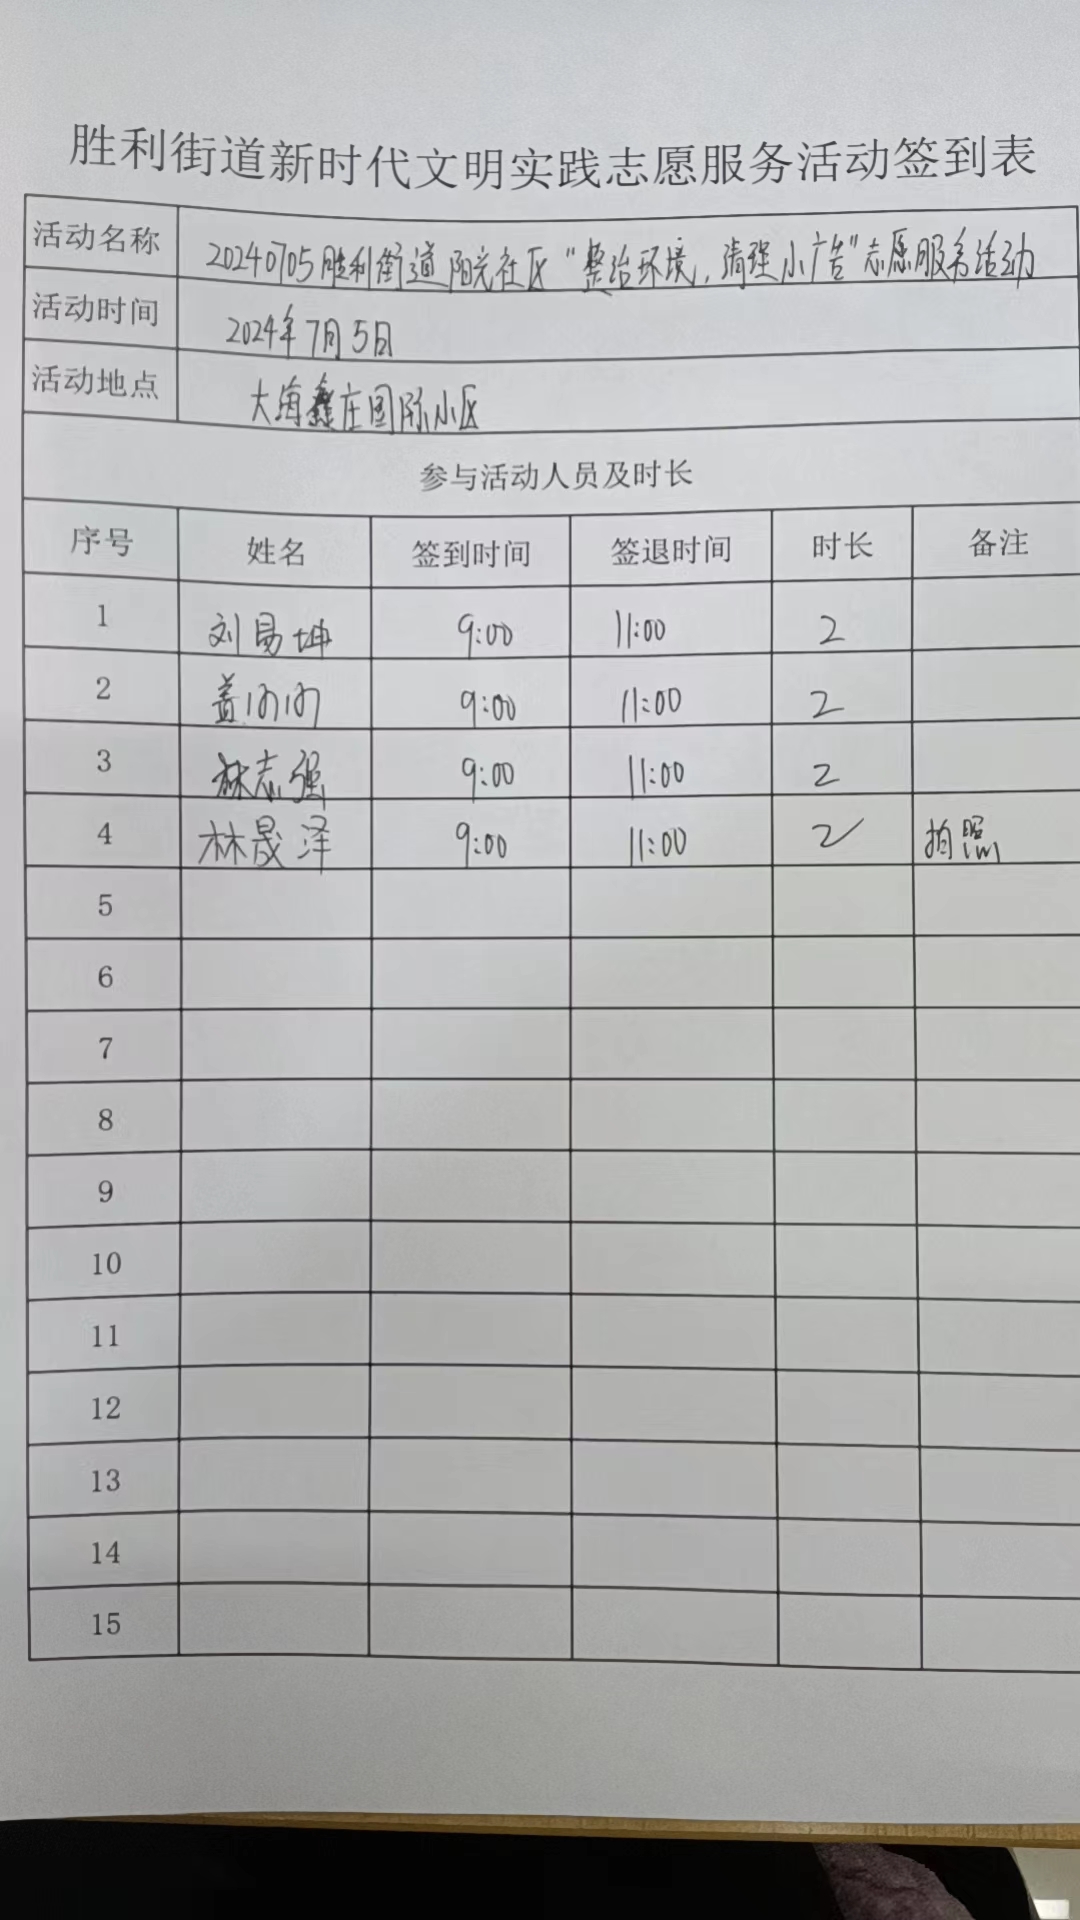 胜利街道新时代文明实践志愿服务活动签到表
活动名称 20240705胜利街道阳光社区“整治环境,清理小广告”志愿服务活动
活动时间 2024年7月5日
活动地点 大海鑫庄国际小区
参与活动人员及时长
序号 姓名 签到时间 签退时间 时长 备注
1 刘易坤 9:00 11:00 2
2 9:00 11:00 2
3 林志强 9:00 11:00 2
4 林晟泽 9:00 11:00 2 拍照
5
6
7
8
9
10
11
12
13
14
15